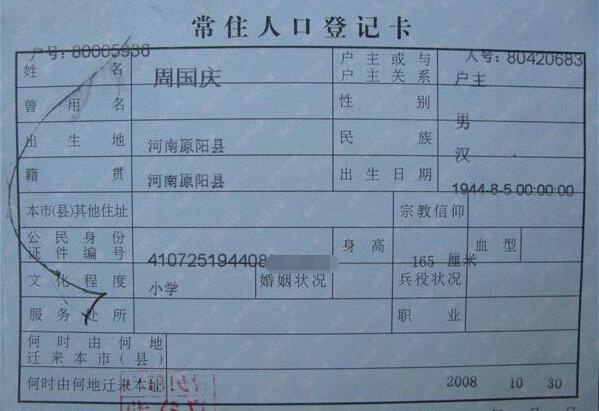 常住人口登记卡
户号: 80005936 人号: 80420683
姓名 周国庆 户主或与户主关系 户主
曾用名 性别 男
出生地 河南原阳县 民族 汉
籍贯 河南原阳县 出生日期 1944-8-5 00:00:00
本市(县)其他住址 宗教信仰
公民身份证件编号 410725194408 身高 165 厘米 血型
文化程度 小学 婚姻状况 兵役状况
服务处所 职业
何时由何地迁来本市(县)
何时由何地迁来本址 2008 10 30